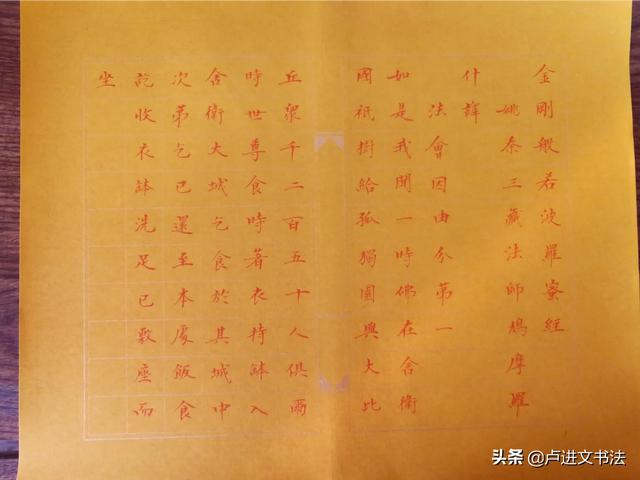 金剛般若波羅蜜經
姚秦三藏法師鳩摩羅
什譯
法會因由分第一
如是我聞一時佛在舍衛
國祇樹給孤獨園與大比
丘眾千二百五十人俱爾
時世尊食時著衣持缽入
舍衛大城乞食於其城中
次第乞已還至本處飯食
訖收衣缽洗足已敷座而
坐
头条 @卢进文书法